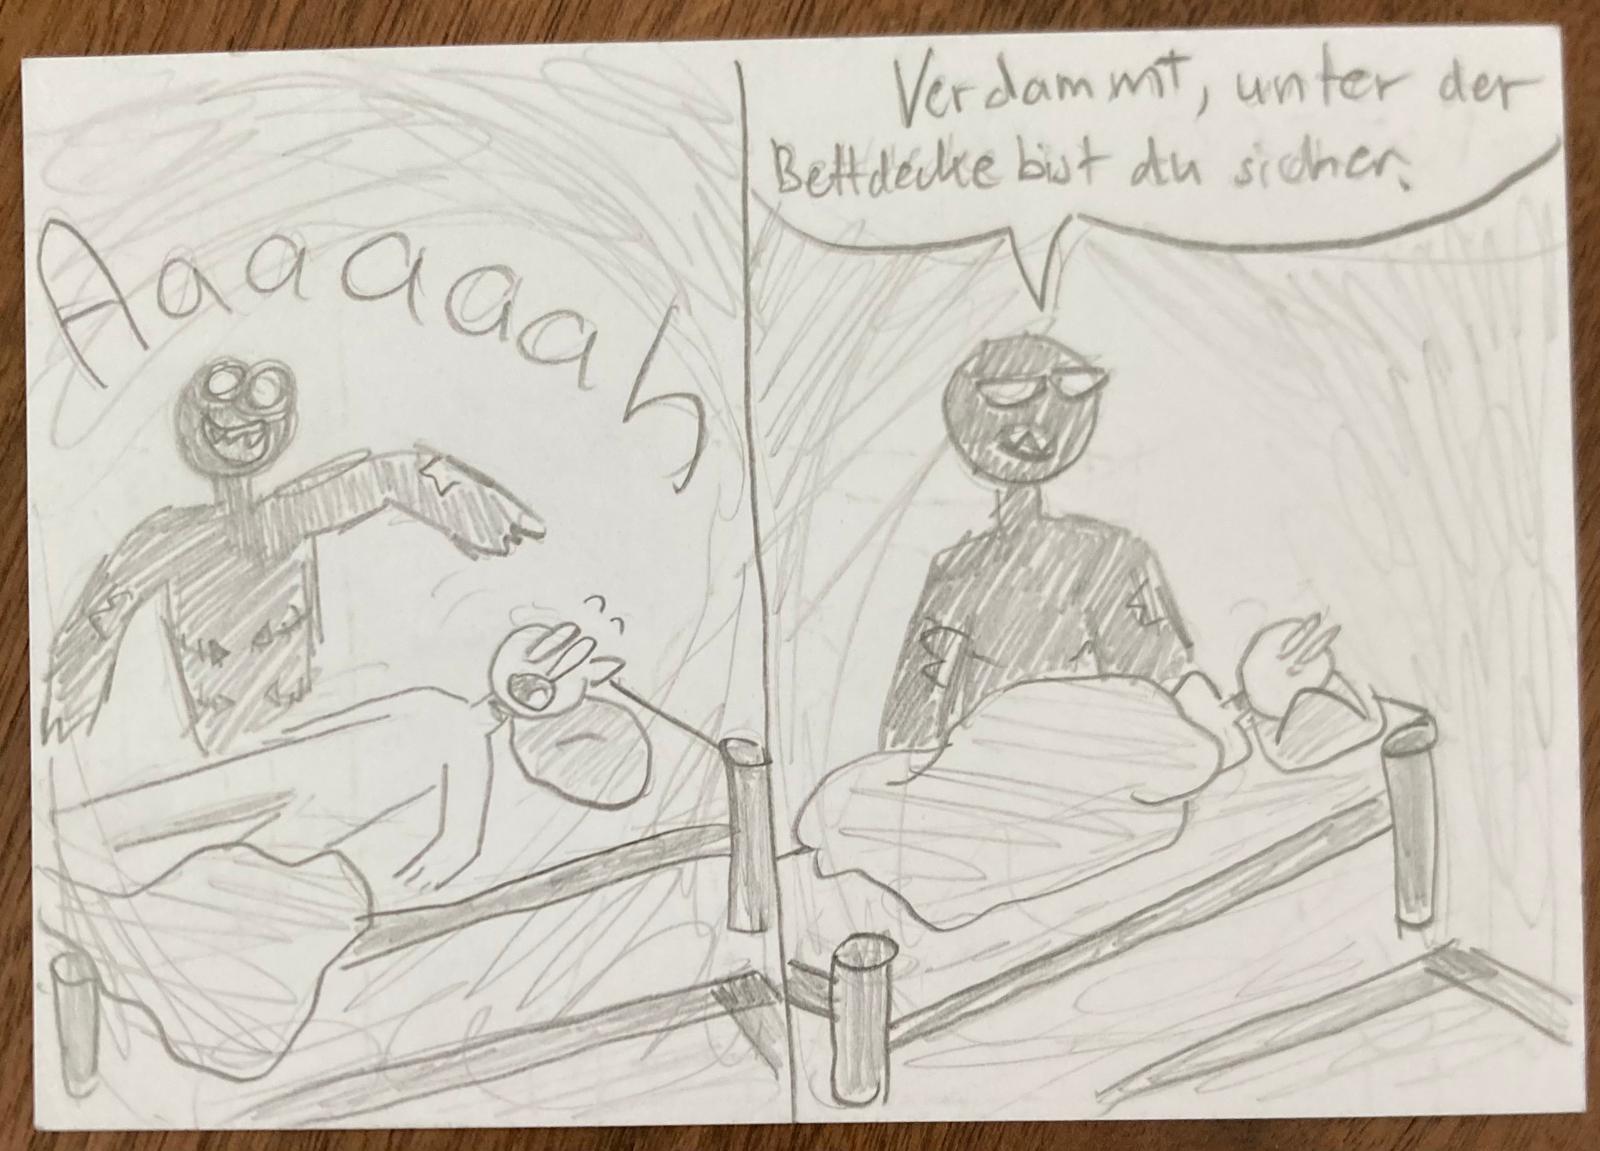 Aaaaaah
Verdammt, unter der
Bettdecke bist du sicher.